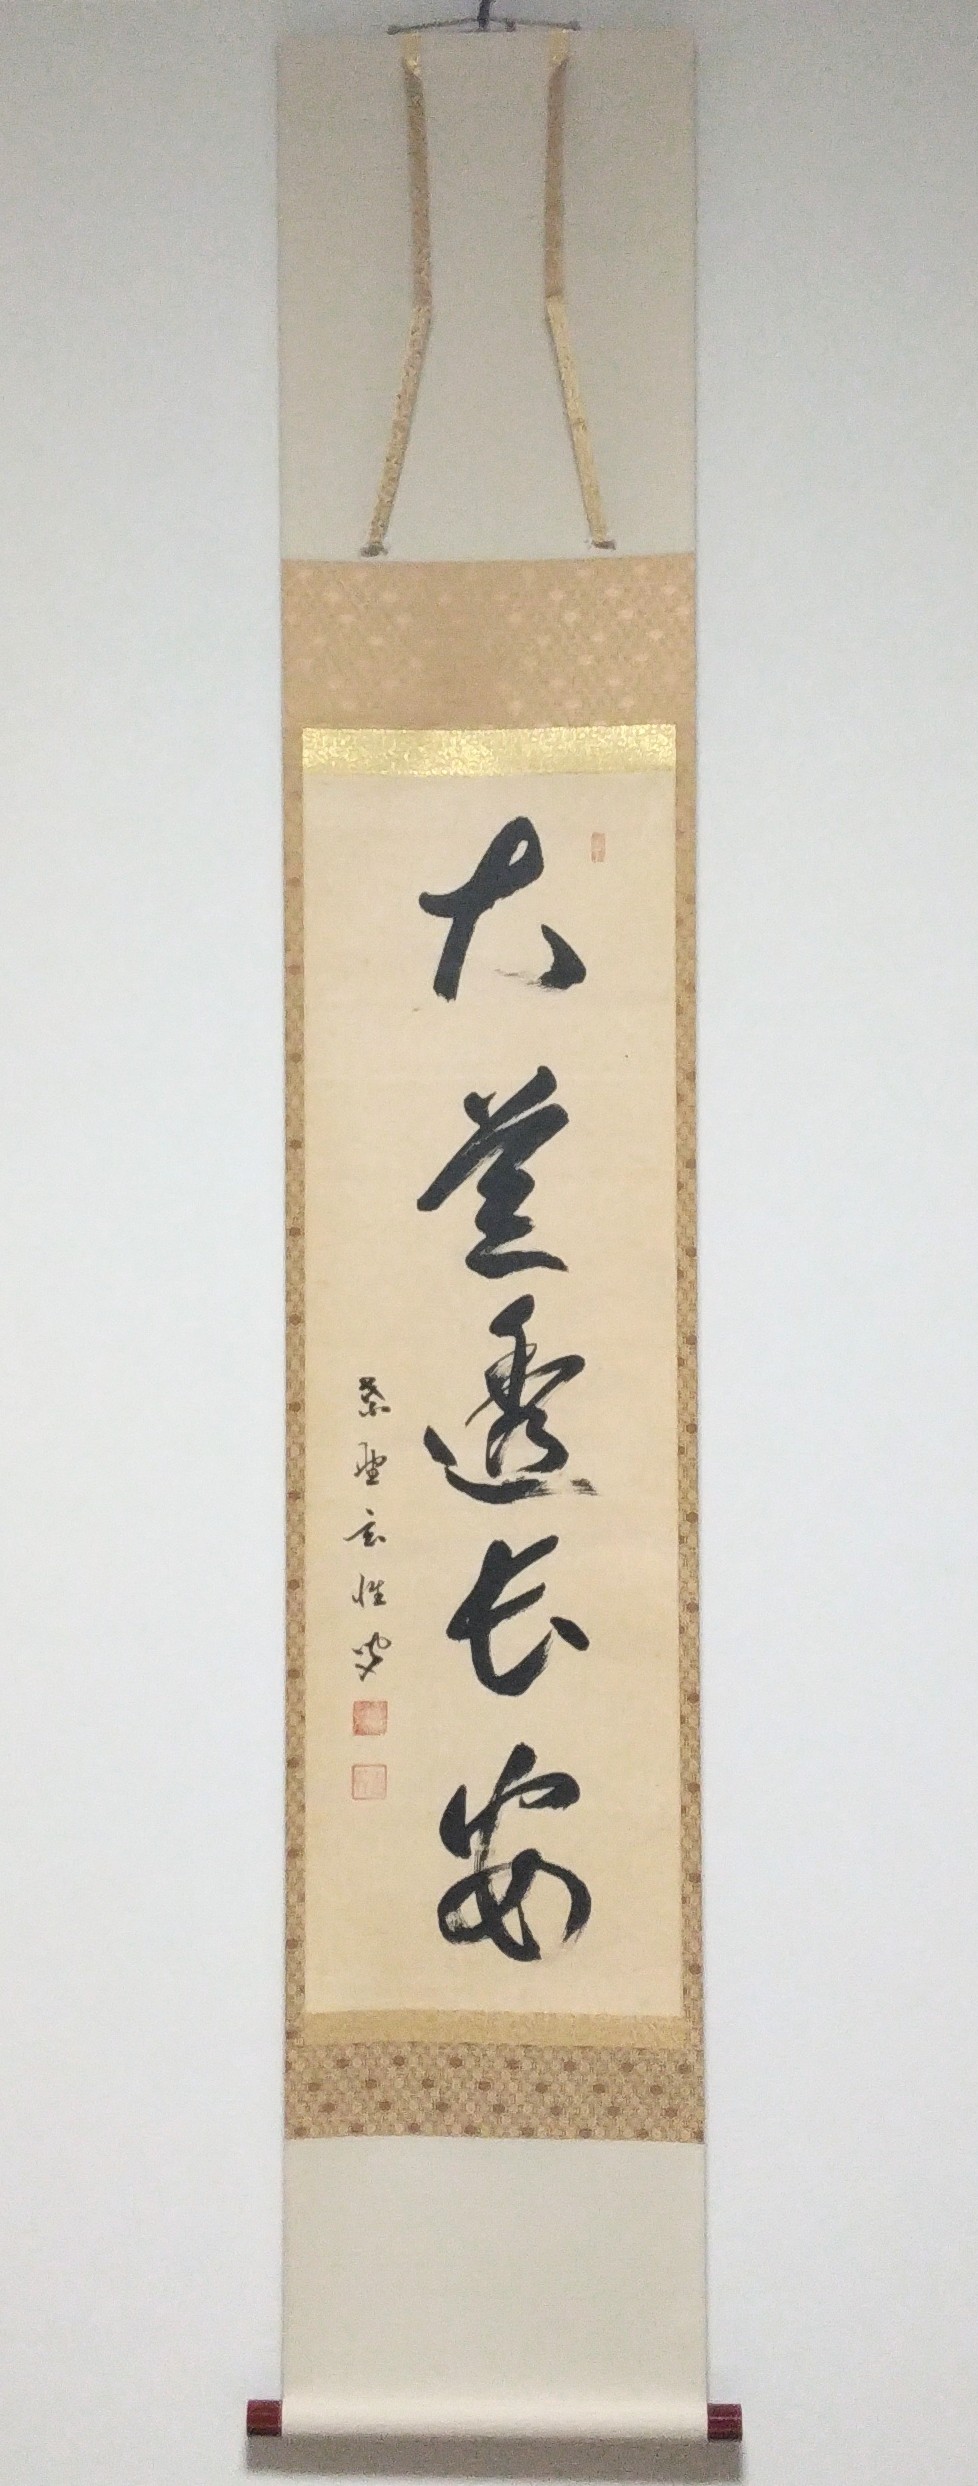 大道透長安
紫野玄性叟